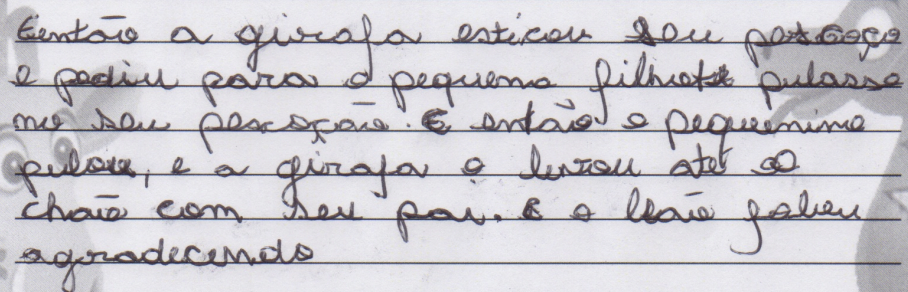 Então a girafa esticou seu pescoço
e pediu para o pequeno filhote pulasse
no seu pescoção. E então o pequenino
pulou, e a girafa o levou até o
chão com seu pai. E o leão falou
agradecendo